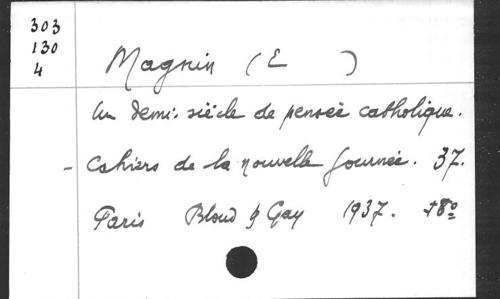 303
130
4
Magnin (E )
Un demi-siècle de pensée catholique.
- Cahiers de la nouvelle Journée. 37.
Paris Bloud & Gay 1937. +8°